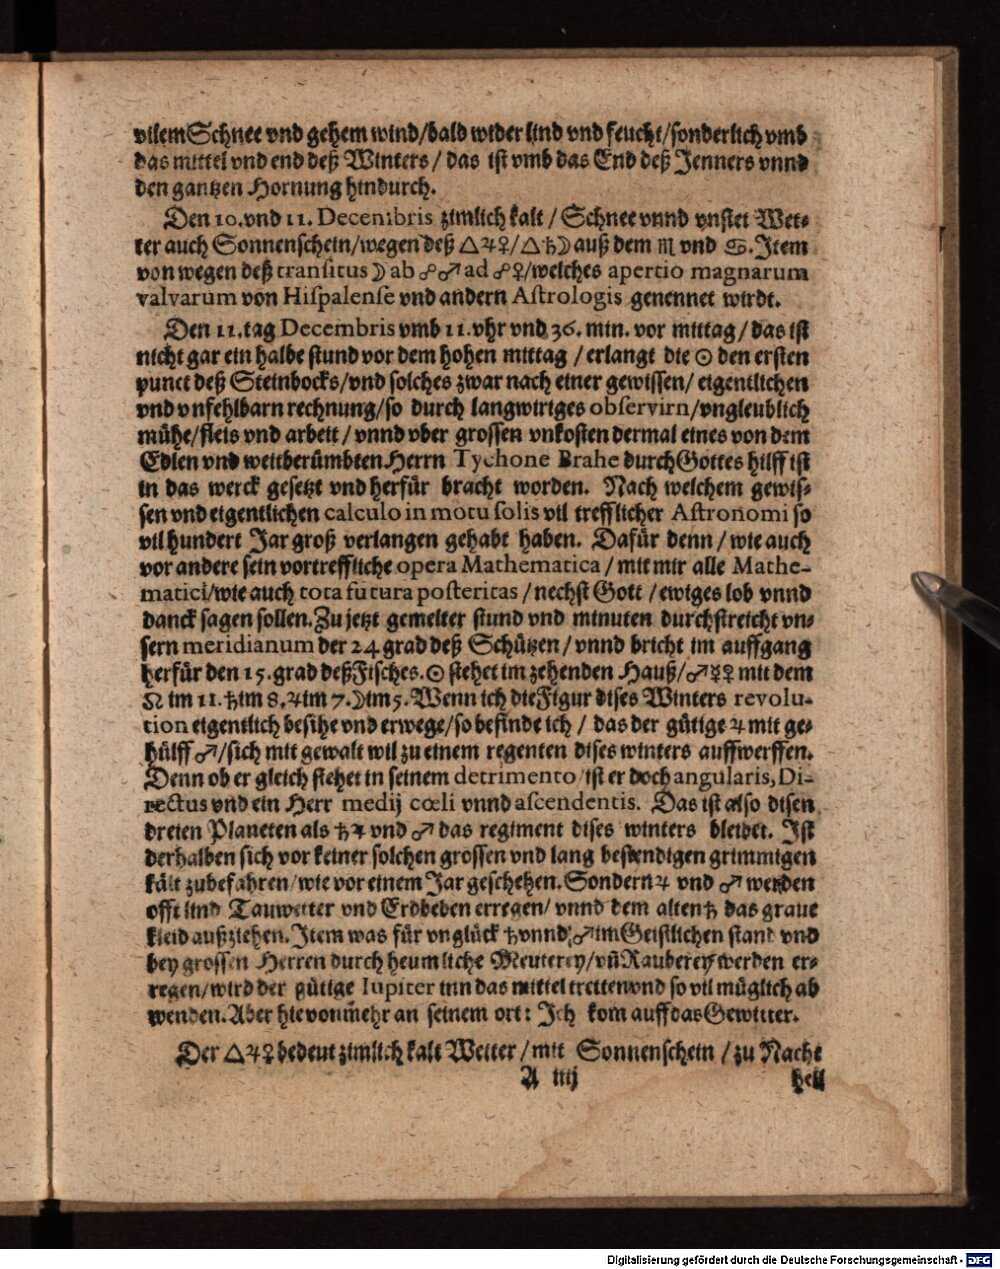 vilem Schnee vnd gehem wind/bald wider lind vnd feucht/sonderlich vmb
das mittel vnd end deß Winters / das ist vmb das End deß Jenners vnnd
den gantzen Hornung hindurch.
Den 10. vnd 11. Decembris zimlich kalt / Schnee vnnd vnstet Wet-
ter auch Sonnenschein/wegen deß △♃♀/△♄☽ auß dem ♏ vnd ♋. Item
von wegen deß tranſitus ☽ ab ☍♂ ad ☍♀/welches apertio magnarum
valvarum von Hiſpalenſe vnd andern Aſtrologis genennet wirdt.
Den 11. tag Decembris vmb 11. vhr vnd 36. min. vor mittag / das ist
nicht gar ein halbe stund vor dem hohen mittag / erlangt die ☉ den ersten
punct deß Steinbocks/vnd solches zwar nach einer gewissen/ eigentlichen
vnd vnfehlbarn rechnung/so durch langwiriges obſervirn/vngleublich
mühe/fleis vnd arbeit / vnnd vber grossen vnkosten dermal eines von dem
Edlen vnd weitberümbten Herrn Tychone Brahe durch Gottes hilff ist
in das werck gesetzt vnd herfür bracht worden. Nach welchem gewis-
sen vnd eigentlichen calculo in motu ſolis vil trefflicher Aſtronomi so
vil hundert Jar groß verlangen gehabt haben. Dafür denn / wie auch
vor andere sein vortreffliche opera Mathematica / mit mir alle Mathe-
matici/wie auch tota futura poſteritas / nechst Gott / ewiges lob vnnd
danck sagen sollen. Zu jetzt gemelter stund vnd minuten durchstreicht vn-
sern meridianum der 24 grad deß Schützen / vnnd bricht im auffgang
herfür den 15. grad deß Fisches. ☉ stehet im zehenden Hauß/♂☿♀ mit dem
☊ im 11. ♄ im 8. ♃ im 7. ☽ im 5. Wenn ich die Figur dises Winters revolu-
tion eigentlich besihe vnd erwege/so befinde ich / das der gütige ♃ mit ge-
hülff ♂/sich mit gewalt wil zu einem regenten dises winters auffwerffen.
Denn ob er gleich stehet in seinem detrimento/ist er doch angularis, Di-
rectus vnd ein Herr medij cœli vnnd aſcendentis. Das ist also disen
dreien Planeten als ♄ ♃ vnd ♂ das regiment dises winters bleibet. Ist
derhalben sich vor keiner solchen grossen vnd lang bestendigen grimmigen
kält zubefahren/wie vor einem Jar geschehen. Sondern ♃ vnd ♂ werden
offt lind Tauwetter vnd Erdbeben erregen/ vnnd dem alten ♄ das graue
kleid außziehen. Item was für vnglück ♄ vnnd ♂ im Geistlichen stand vnd
bey grossen Herren durch heumliche Meuterey/vñ Rauberey werden er-
regen/wird der gütige Iupiter inn das mittel tretten vnd so vil müglich ab
wenden. Aber hievon mehr an seinem ort: Ich kom auff das Gewitter.
Der △♃♀ bedeut zimlich kalt Wetter / mit Sonnenschein / zu Nacht
A iiij
hell
Digitalisierung gefördert durch die Deutsche Forschungsgemeinschaft - DFG